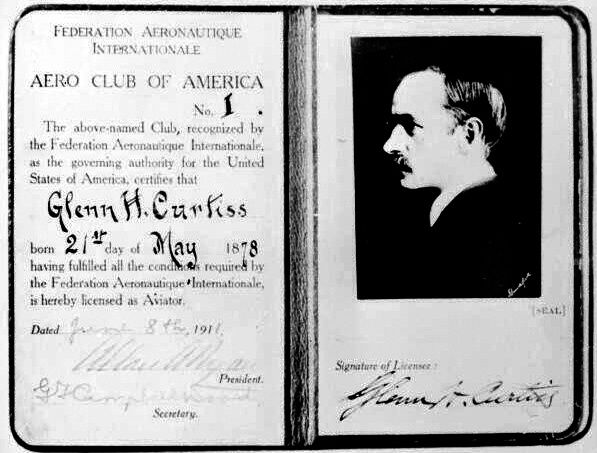 FEDERATION AERONAUTIQUE
INTERNATIONALE
AERO CLUB OF AMERICA
No. 1.
The above-named Club, recognized by
the Federation Aeronautique Internationale,
as the governing authority for the United
States of America, certifies that
Glenn H. Curtiss
born 21st day of May 1878
having fulfilled all the conditions required by
the Federation Aeronautique Internationale,
is hereby licensed as Aviator.
Dated June 8th, 1911.
Allan A. Ryan
President.
Secretary.
[SEAL]
Signature of Licensee:
Glenn H. Curtiss